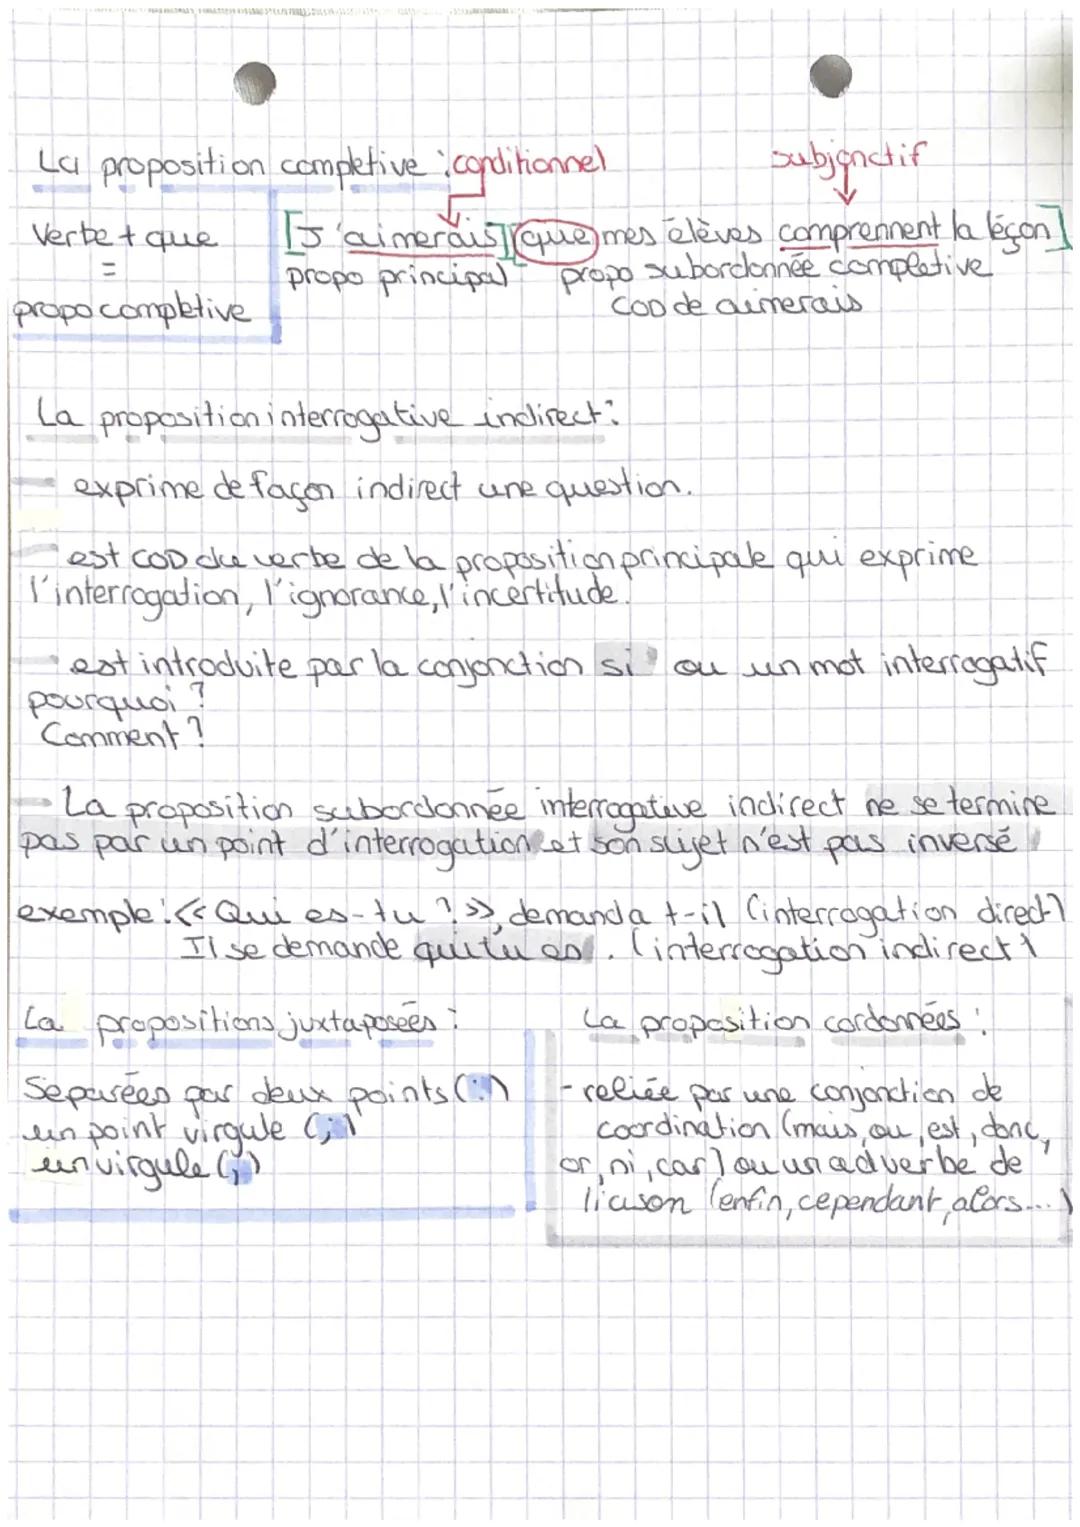 La proposition completive : conditionnel subjonctif
Verbe + que [J'aimerais] [que mes élèves comprennent la léçon]
= propo principal propo subordonnée completive
propo completive COD de aimerais
La proposition interrogative indirect :
- exprime de façon indirect une question.
- est COD du verbe de la proposition principale qui exprime
l'interrogation, l'ignorance, l'incertitude.
- est introduite par la conjonction si ou un mot interrogatif
pourquoi ?
Comment ?
- La proposition subordonnée interrogative indirect ne se termine
pas par un point d'interrogation et son sujet n'est pas inversé
exemple : « Qui es-tu ? », demanda t-il (interrogation direct)
Il se demande qui tu es. (interrogation indirect)
La propositions juxtaposées :
Séparées par deux points (:)
un point virgule (;)
un virgule (,)
La proposition cordonnées :
- reliée par une conjonction de
coordination (mais, ou, est, donc,
or, ni, car) ou un adverbe de
liaison (enfin, cependant, alors...)